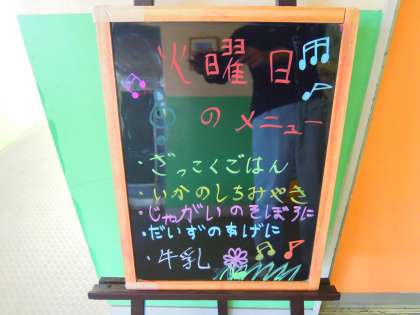 火曜日
の メニュー
・ざっこくごはん
・いかのしちみやき
・じゃがいものそぼろに
・だいずのあげに
・牛乳